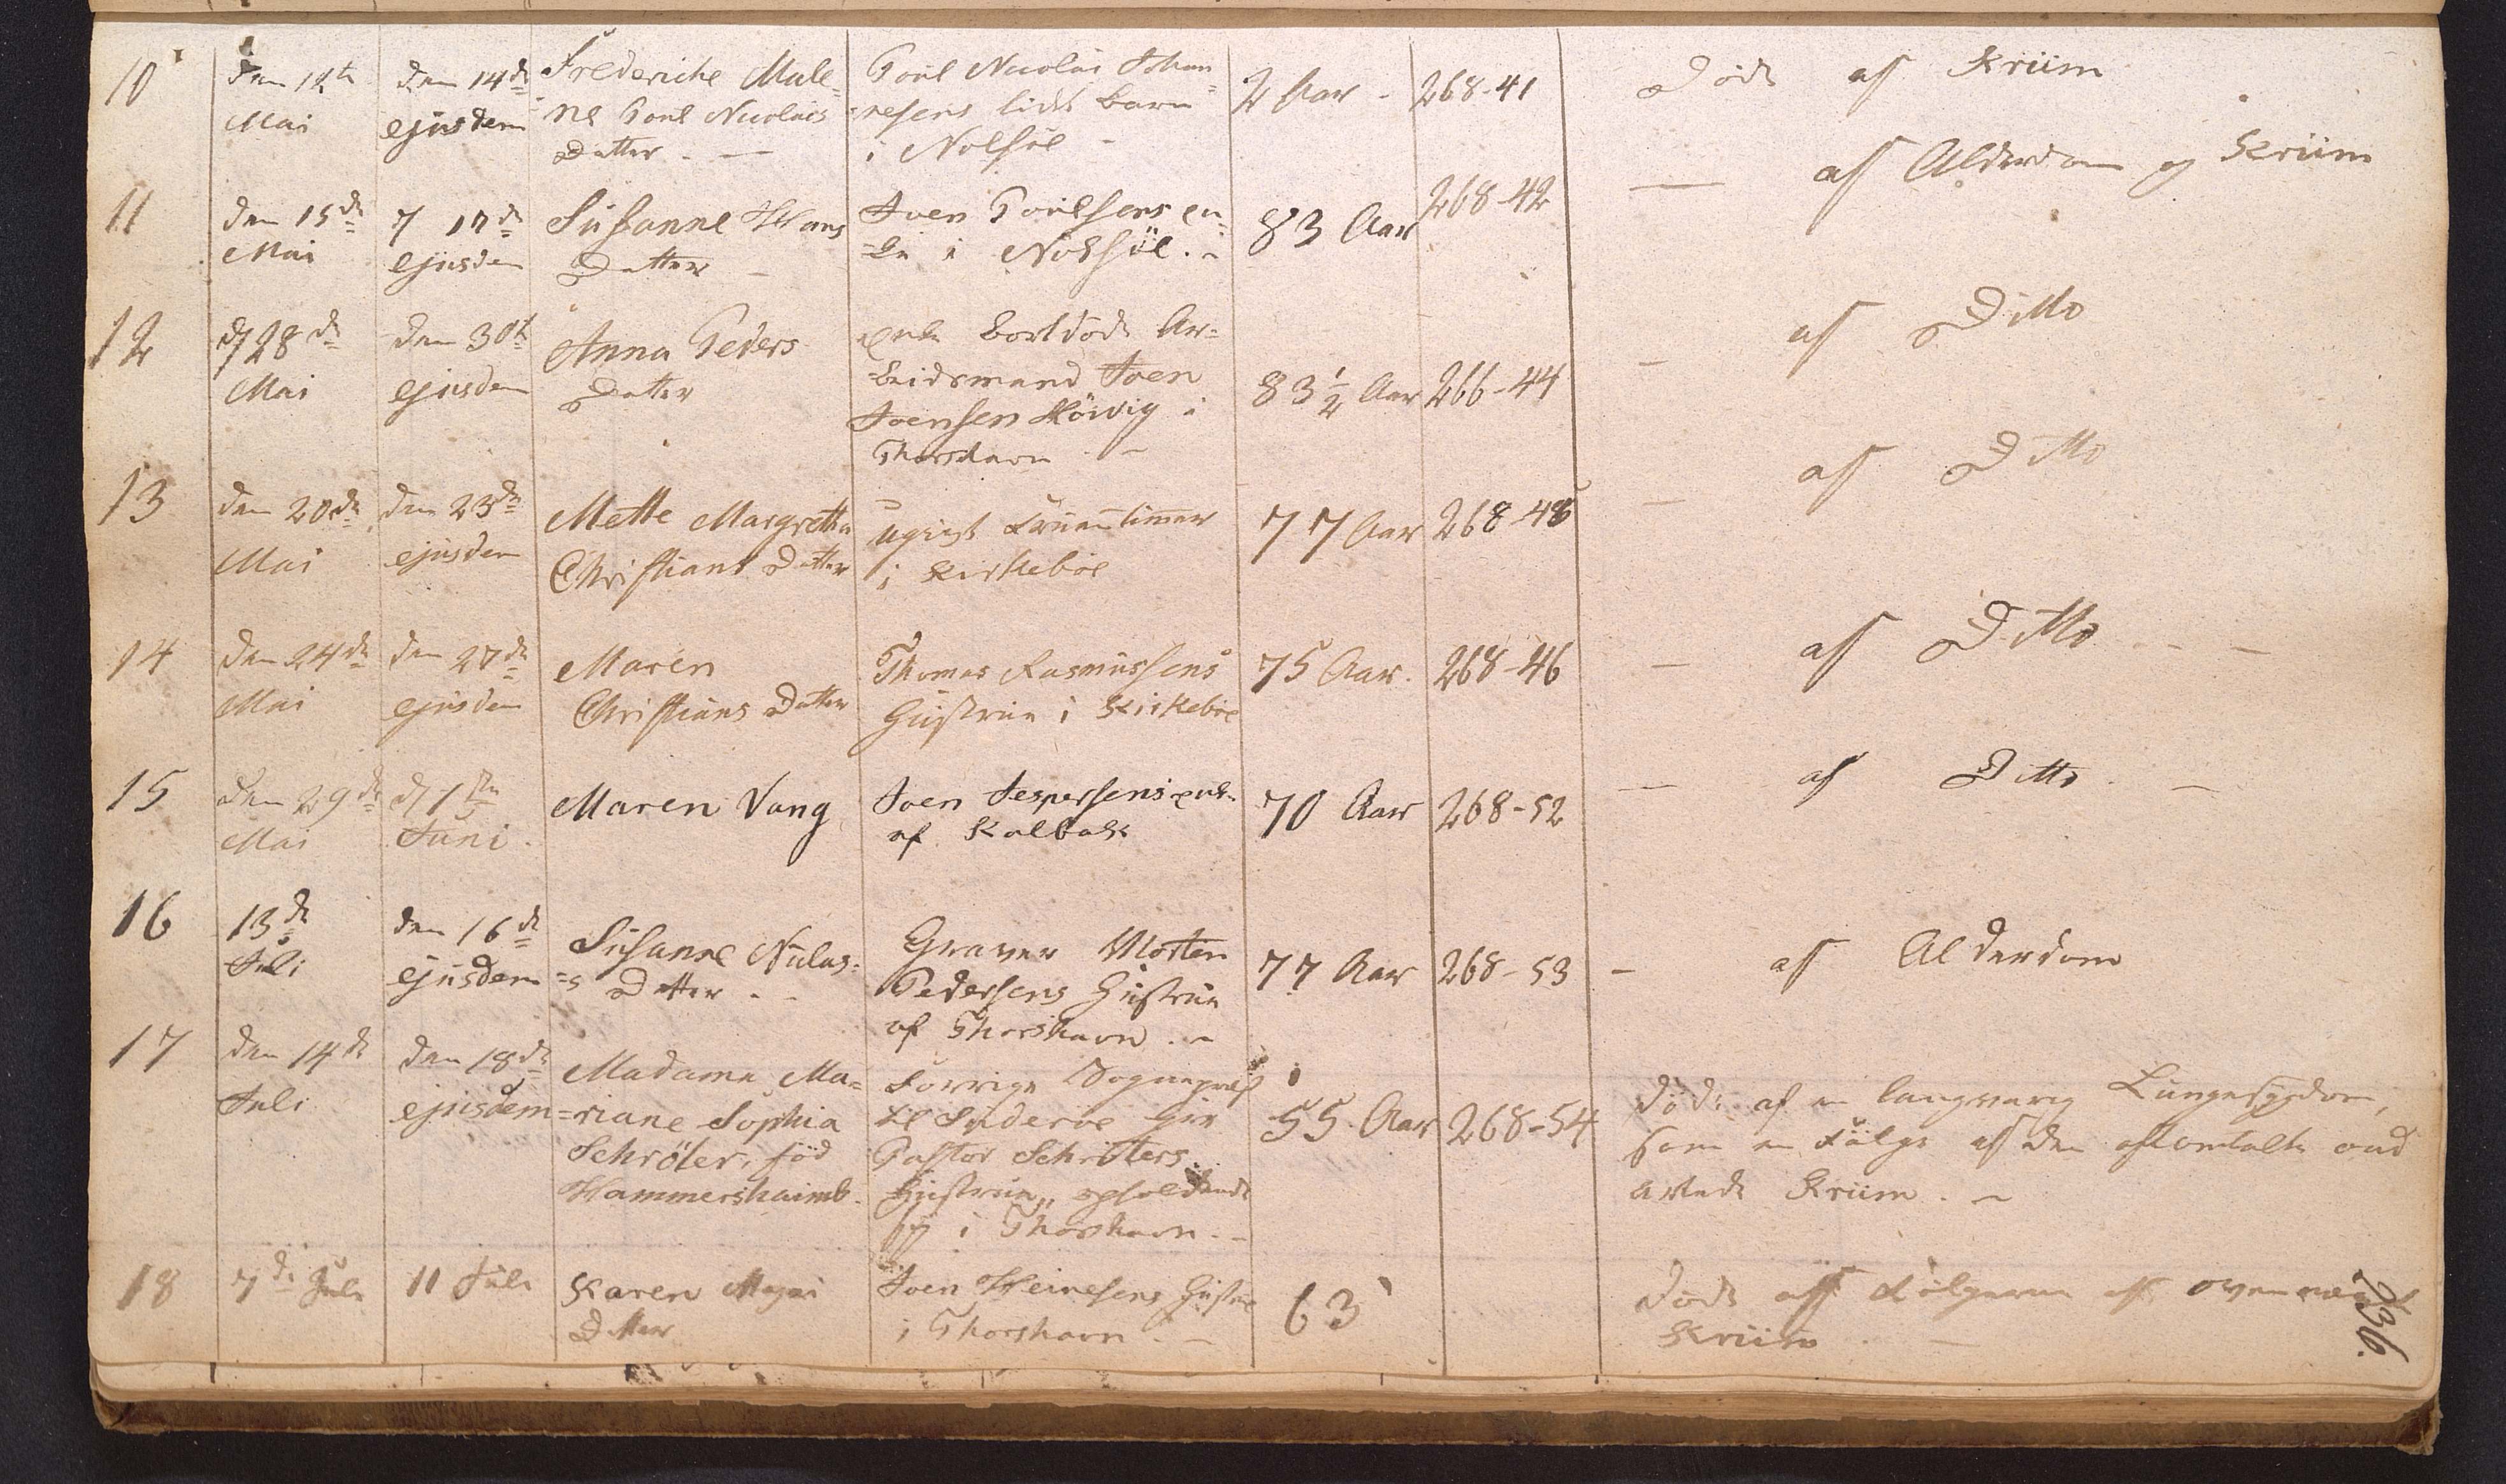 10 den 12te den 14de Frederiche Male= Poul Nicolai Johan= 2 Aar - 268-41 Döde af Kriim
Mai ejusdem ne Poul Nicolais nesens lidet barn
Datter. — i Nolsöe -
11 den 15de 17de Susanne Hans Joen Poulsens en= 83 Aar 268-42 — af Alderdom og Kriim
Mai ejusdem Datter - ke i Nolsöe. -
12 d 28de den 30te Anna Peders enke bortdöde Ar= 83½ Aar 266-44 - af Ditto
Mai ejusdem Datter beidsmand Joen
Joensen Höivig i
Thorshavn . -
13 den 20de den 23de Mette Margretha ugivt Fruentimer 77 Aar 268-45 - af Ditto
Mai ejusdem Christians Datter i Kirkeböe
14 den 24de den 27de Maren Thomas Rasmussens 75 Aar. 268-46 - af Ditto
Mai ejusdem Christians Datter Hustrue i Kirkeböe
15 den 29de d 1ste Maren Vang Joen Jespersens enke 70 Aar 268-52 - af Ditto. -
Mai Juni. af Kalbak
16 13de den 16de Susanne Nicolas= Graver Morten 77 Aar 268-53 - af Alderdom
Juli ejusdem =s Datter . - Pedersens Hustrue
af Thorshavn . -
17 den 14de den 18de Madame Ma= Forrige Sognepræst 55 Aar 268-54 döde af en langvarig Lungesygdom,
Juli ejusdem =riane Sophia til Suderöe Her som en Fölge af den oftomtalte ond
Schröter, föd Pastor Schröters artede Kriim . -
Hammershaimb. Hustrue, opholdende
sig i Thorshavn. -
18 7de Juli 11 Juli Karen Joen Heinesens Hustrue 63 Döde af Fölgerne af ovennævnte
Datter i Thorshavn. - Kriim -
236.